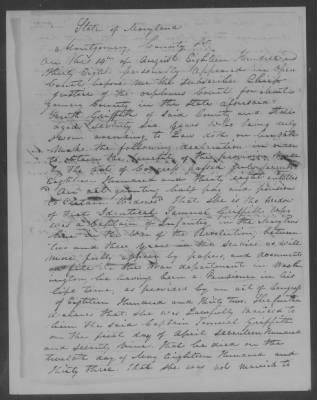 State of Maryland
Montgomery County
On the day of August Eighteen Hundred and
thirty Eight personally appeared in Open
Court before me the subscriber Chief
Justice of the Orphans Court for Montgo-
mery County in the State aforesaid
Ruth Griffith of said County and State
aged Seventy Six years who being duly
sworn according to Law doth on her oath
make the following declaration in order
to obtain the benefits of the provision made
by the act of Congress passed
Eighteen Hundred and thirty Eight entitled
"An act granting half pay and pensions
to Certain Widows" That she is the widow
of that Identical Samuel Griffith who
was a Captain of Infantry in the
line in the War of the Revolution, between
two and three years in the service, as will
more fully appear by papers, and documents
on file in the War department in Wash-
ington he having been a Pensioner in his
life time, as provided by an act of Congress
of Eighteen Hundred and thirty two. She further
declares that she was Lawfully married to
him the said Captain Samuel Griffith
on the first day of April Seventeen Hundred
and Seventy Nine. That he died on the
twelfth day of May Eighteen Hundred and
thirty three. That she was not married to